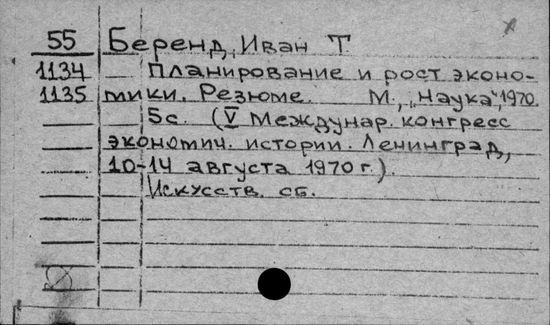 55 Беренд, Иван Т.
1134 Планирование и рост эконо-
1135 мики. Резюме. М., "Наука", 1970.
5с. (V Междунар. конгресс
экономич. истории. Ленинград,
10-14 августа 1970 г.).
Искусств. сб.